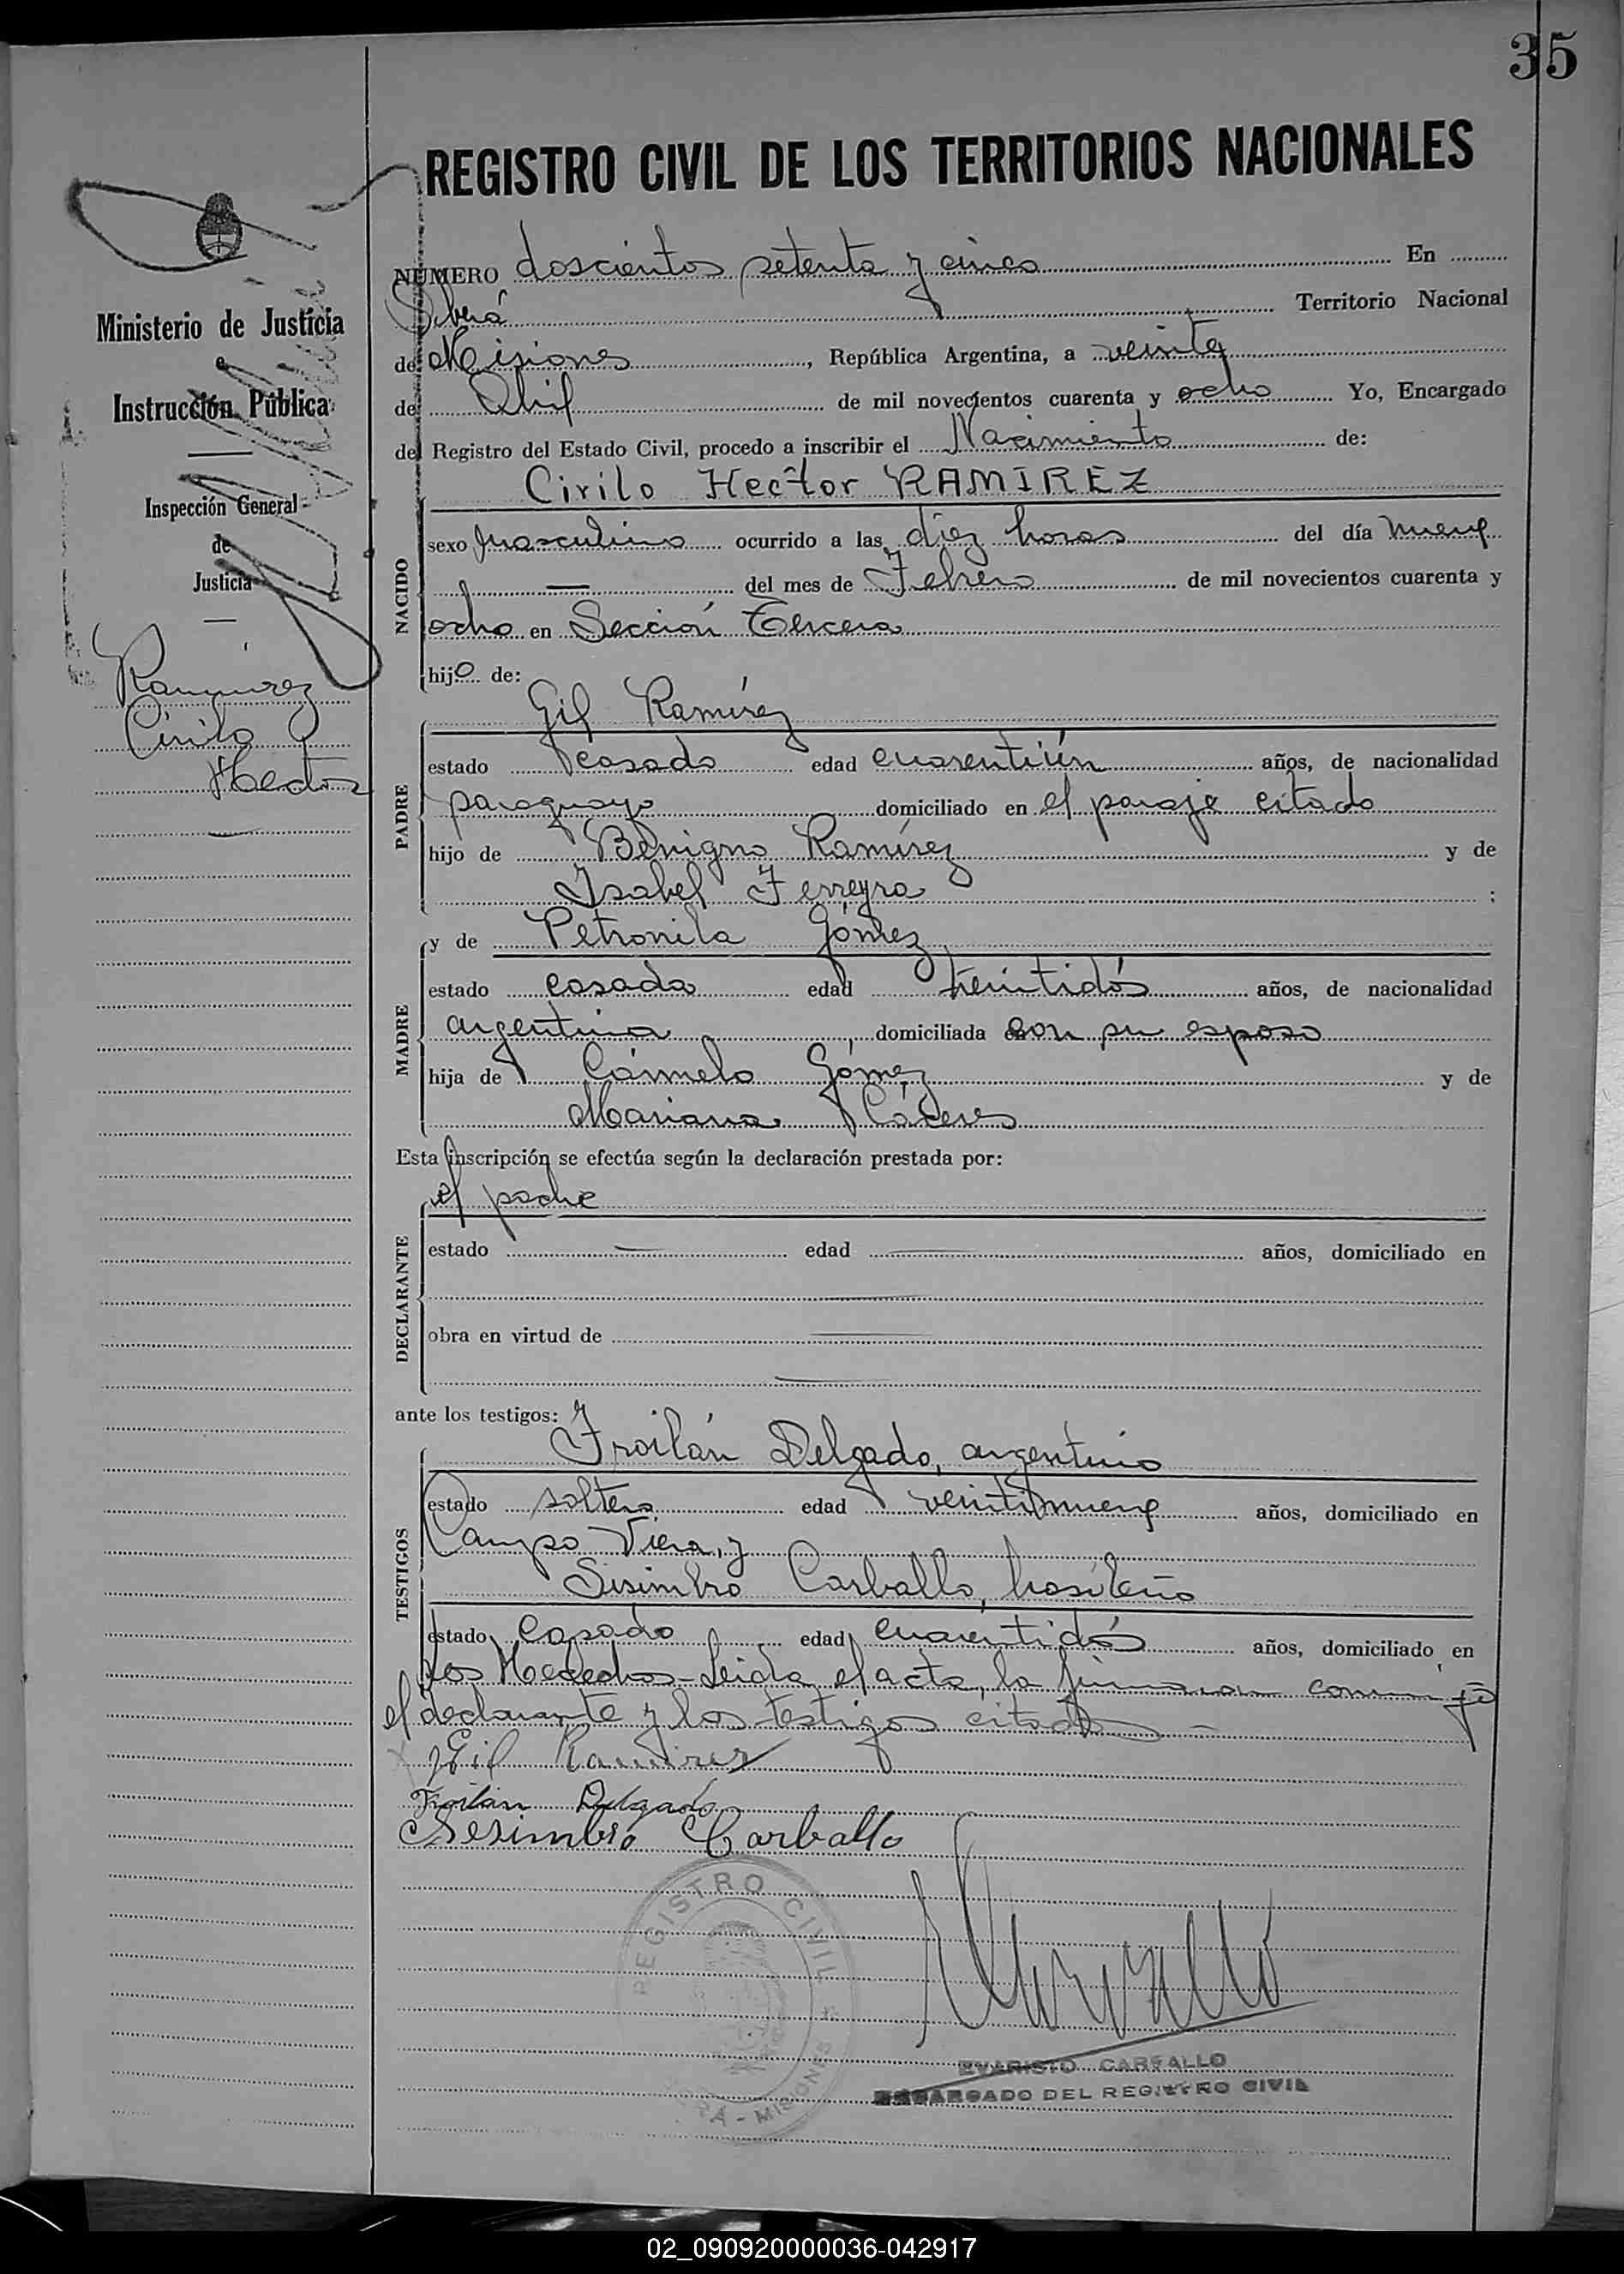 35
REGISTRO CIVIL DE LOS TERRITORIOS NACIONALES
NÚMERO doscientos setenta y cinco En
Oberá Territorio Nacional
de Misiones, República Argentina, a veinte
de Abril de mil novecientos cuarenta y ocho Yo, Encargado
del Registro del Estado Civil, procedo a inscribir el Nacimiento de:
Cirilo Hector RAMIREZ
NACIDO
sexo masculino ocurrido a las diez horas del día nueve
— del mes de Febrero de mil novecientos cuarenta y
ocho en Sección Tercera
hijo de:
Gil Ramírez
PADRE
estado casado edad cuarentiún años, de nacionalidad
paraguayo domiciliado en el paraje citado
hijo de Benigno Ramírez y de
Isabel Ferreyra ;
y de Petronila Gómez
MADRE
estado casada edad treintidós años, de nacionalidad
argentina, domiciliada con su esposo
hija de Carmelo Gómez y de
Mariana Cáceres
Esta inscripción se efectúa según la declaración prestada por:
el padre
DECLARANTE
estado — edad — años, domiciliado en
obra en virtud de —
ante los testigos:
Froilán Delgado, argentino
TESTIGOS
estado soltero edad veintinueve años, domiciliado en
Campo Viera, y
Sisimbro Carballo, brasileño
estado casado edad cuarentidós años, domiciliado en
Los Helechos - Leída el acta, la firman conmigo
el declarante y los testigos citados —
Gil Ramirez
Froilan Delgado
Sesimbro Carballo
REGISTRO CIVIL
MISIONES
EVARISTO CARBALLO
ENCARGADO DEL REGISTRO CIVIL
Ministerio de Justicia
e
Instrucción Pública
Inspección General
de
Justicia
Ramirez
Cirilo
Hector
02_090920000036-042917